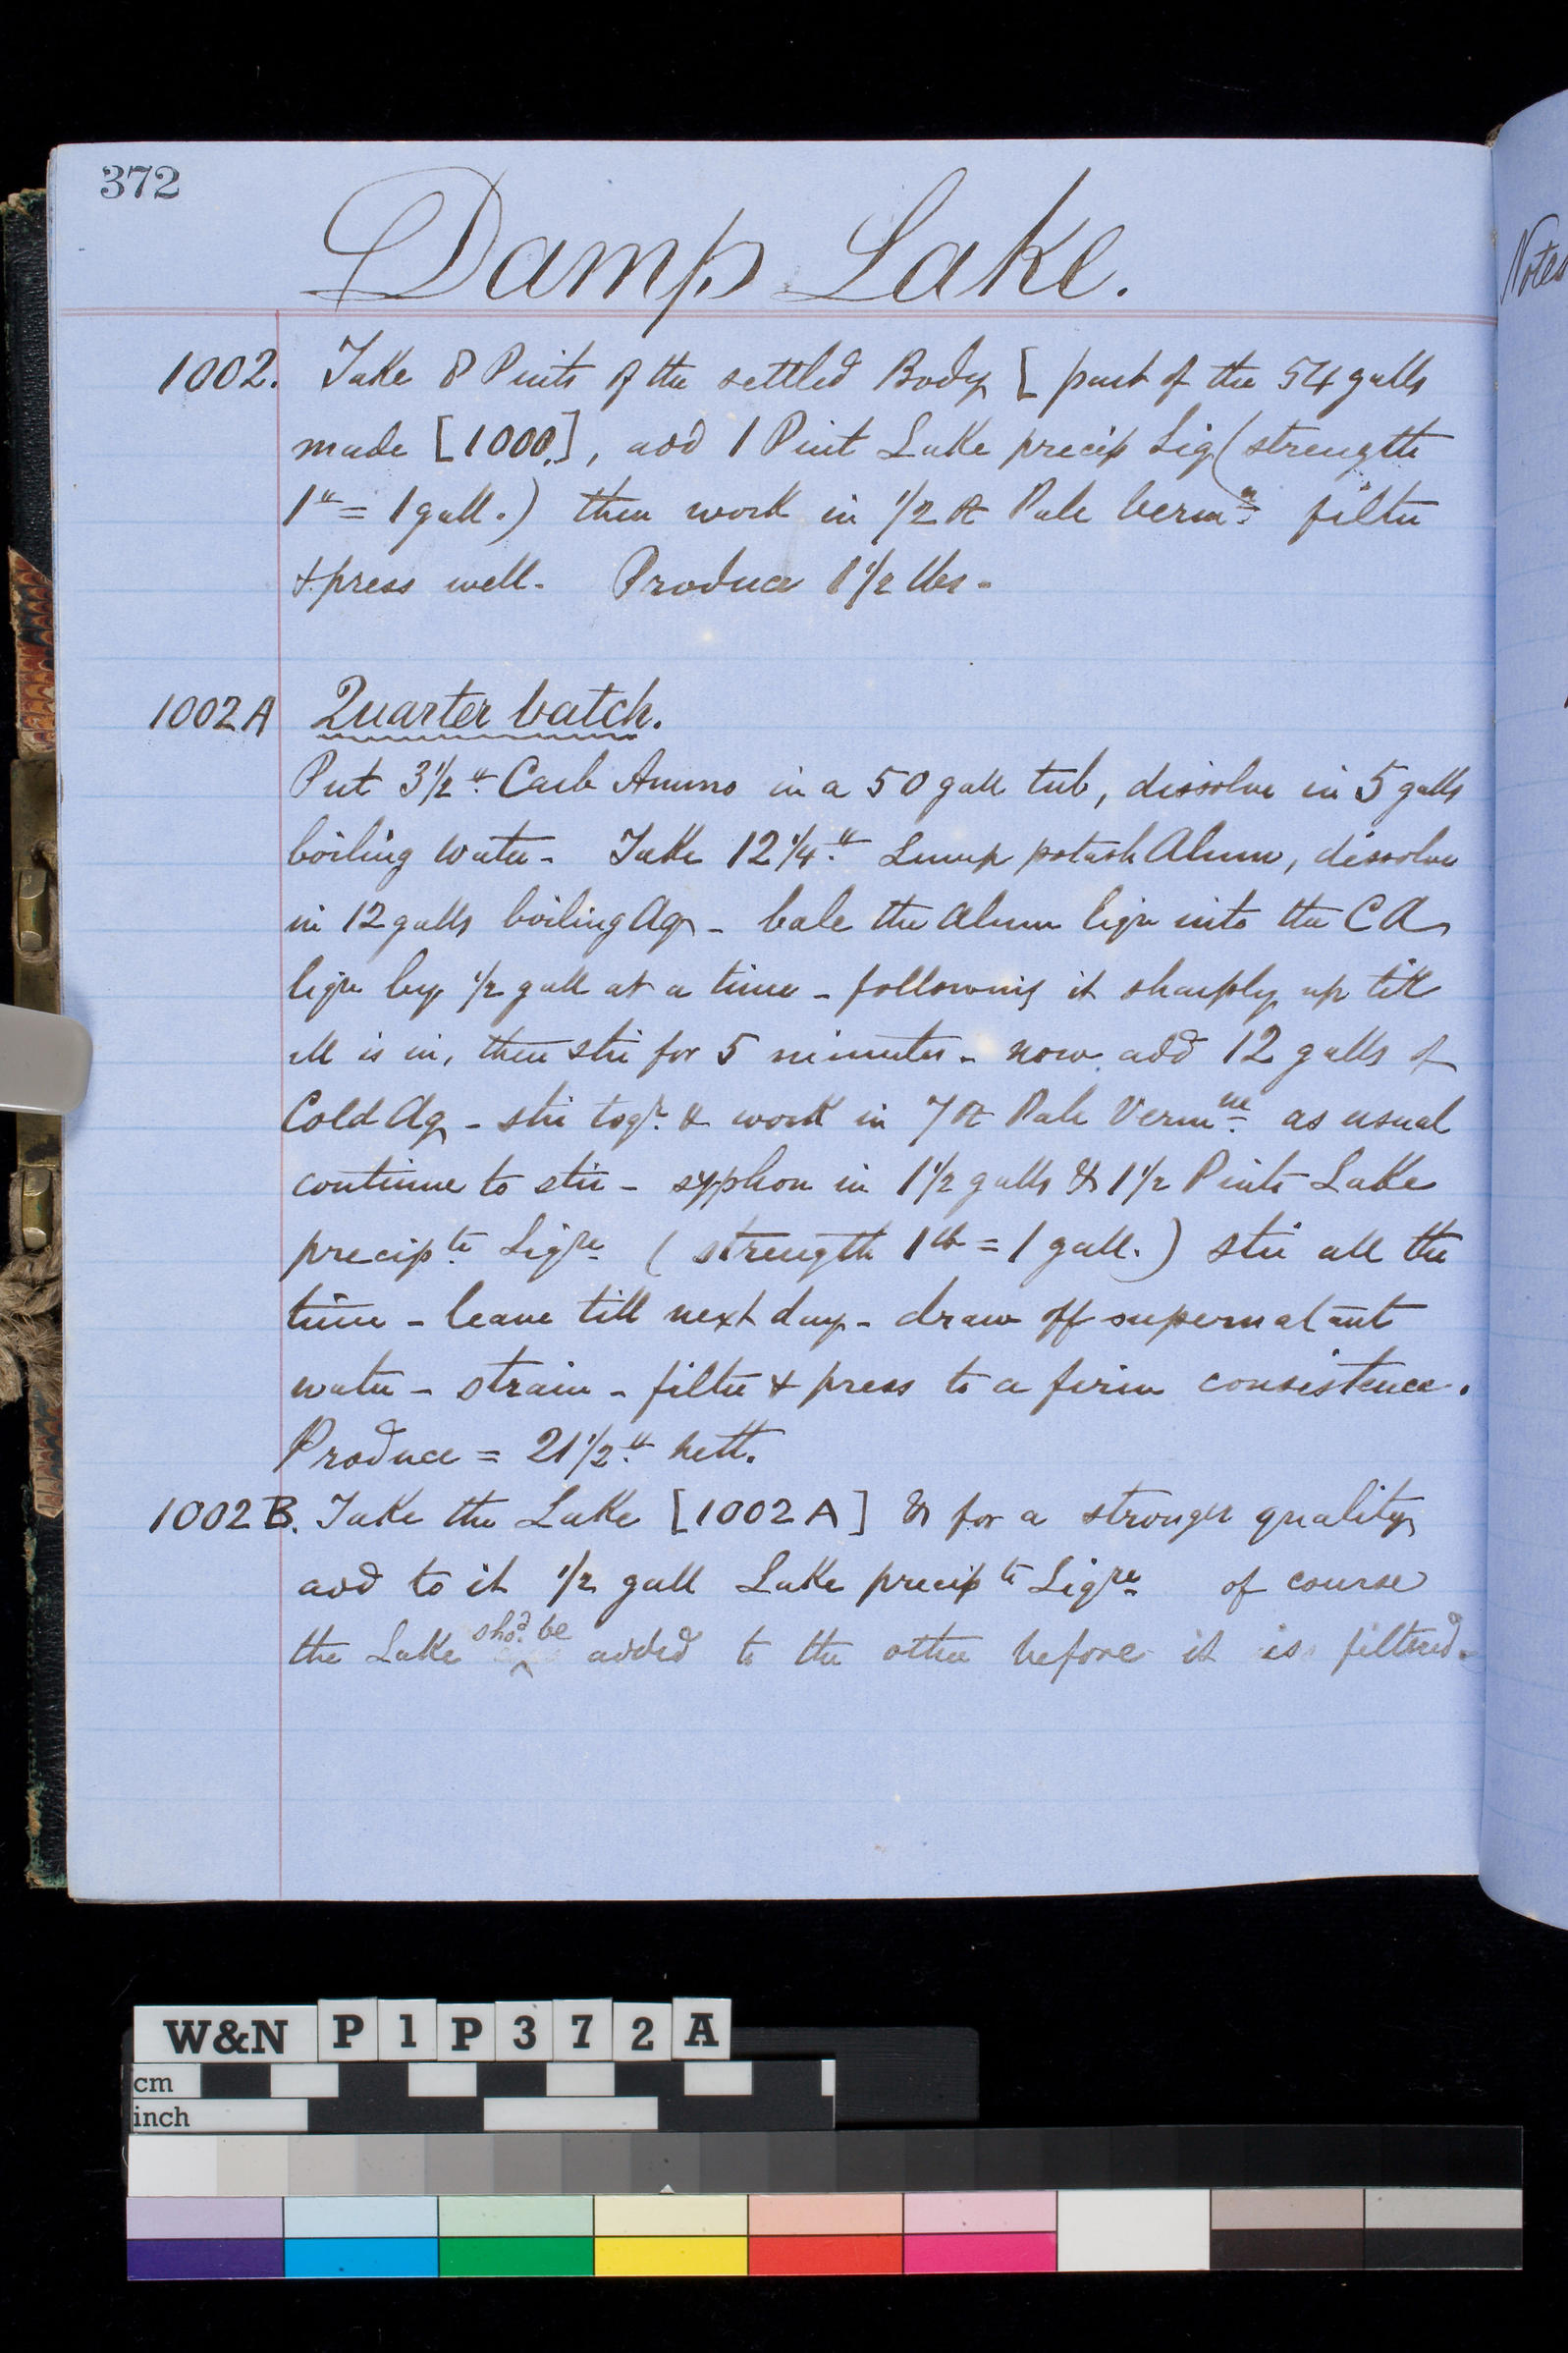 372
Damp Lake.
Notes
1002. Take 8 Pints of the settled Body [ part of the 54 galls
made [1000.], add 1 Pint Lake precip Liq (strength
1 lb = 1 gall.) then work in 1/2 lb Pale Verm n filter
& press well - Produce 1 1/2 lbs -
1002A Quarter batch.
Put 3 1/2 lb Carb Ammo in a 50 gall tub, dissolve in 5 galls
boiling water - Take 12 1/4 lb Lump potash Alum, dissolve
in 12 galls boiling Aq - bale the Alum liqr into the CA
liqr by 1/2 gall at a time - following it sharply up till
all is in, then stir for 5 minutes - now add 12 galls of
Cold Aq - stir togr. & work in 7 lb Pale Verm ne as usual
continue to stir - syphon in 1 1/2 galls & 1 1/2 Pints Lake
precip te Liqre ( strength 1 lb = 1 gall. ) stir all the
time - leave till next day - draw off supernatant
water - strain - filter & press to a firm consistence.
Produce = 21 1/2 lb nett.
1002B. Take the Lake [1002A] & for a stronger quality
add to it 1/2 gall Lake precip te Liqre of course
the Lake shod. be added to the other before it is filtered -
W&N P1P372A
cm
inch